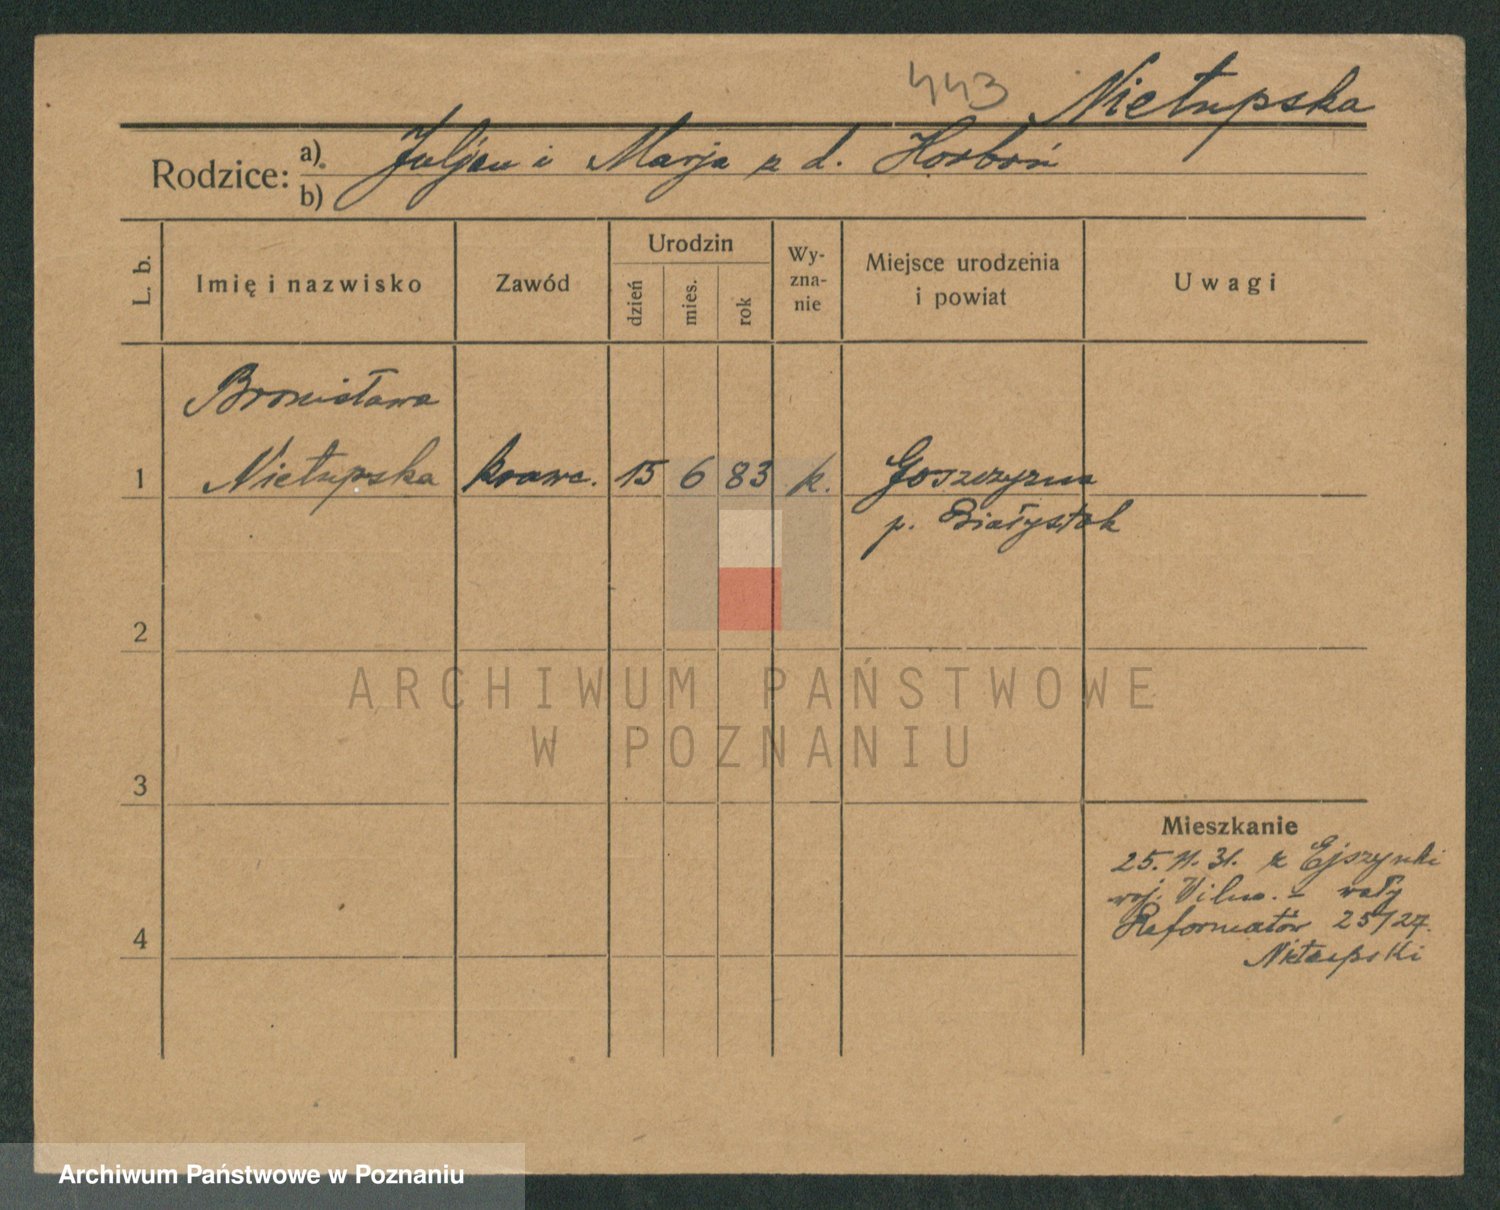 443 Nietupska
Rodzice: a) b) Juljan i Marja z d. Horboń
L. b.
Imię i nazwisko
Zawód
Urodzin
dzień
mies.
rok
Wy-
zna-
nie
Miejsce urodzenia
i powiat
Uwagi
Bronisława
1 Nietupska krawc. 15 6 83 k. Goszczyzna
p. Białystok
2
ARCHIWUM PAŃSTWOWE
W POZNANIU
3
Mieszkanie
25.11.31. z Ejszyszki
woj. Wilno. - wały
Reformatów 25/27.
4
Nietupski
Archiwum Państwowe w Poznaniu